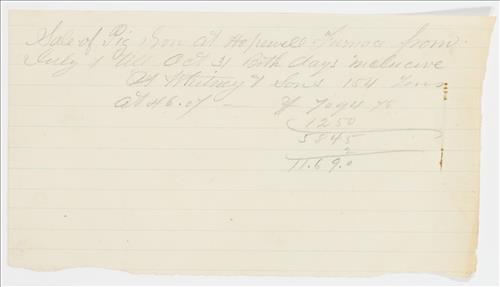 Sale of Pig Iron at Hopewell Furnace from
July 1 till Oct 31 both days inclusive
At Whitney & Sons 154 Tons
at 46.07 — $ 7094.78
1250
5845
2
11.69.0